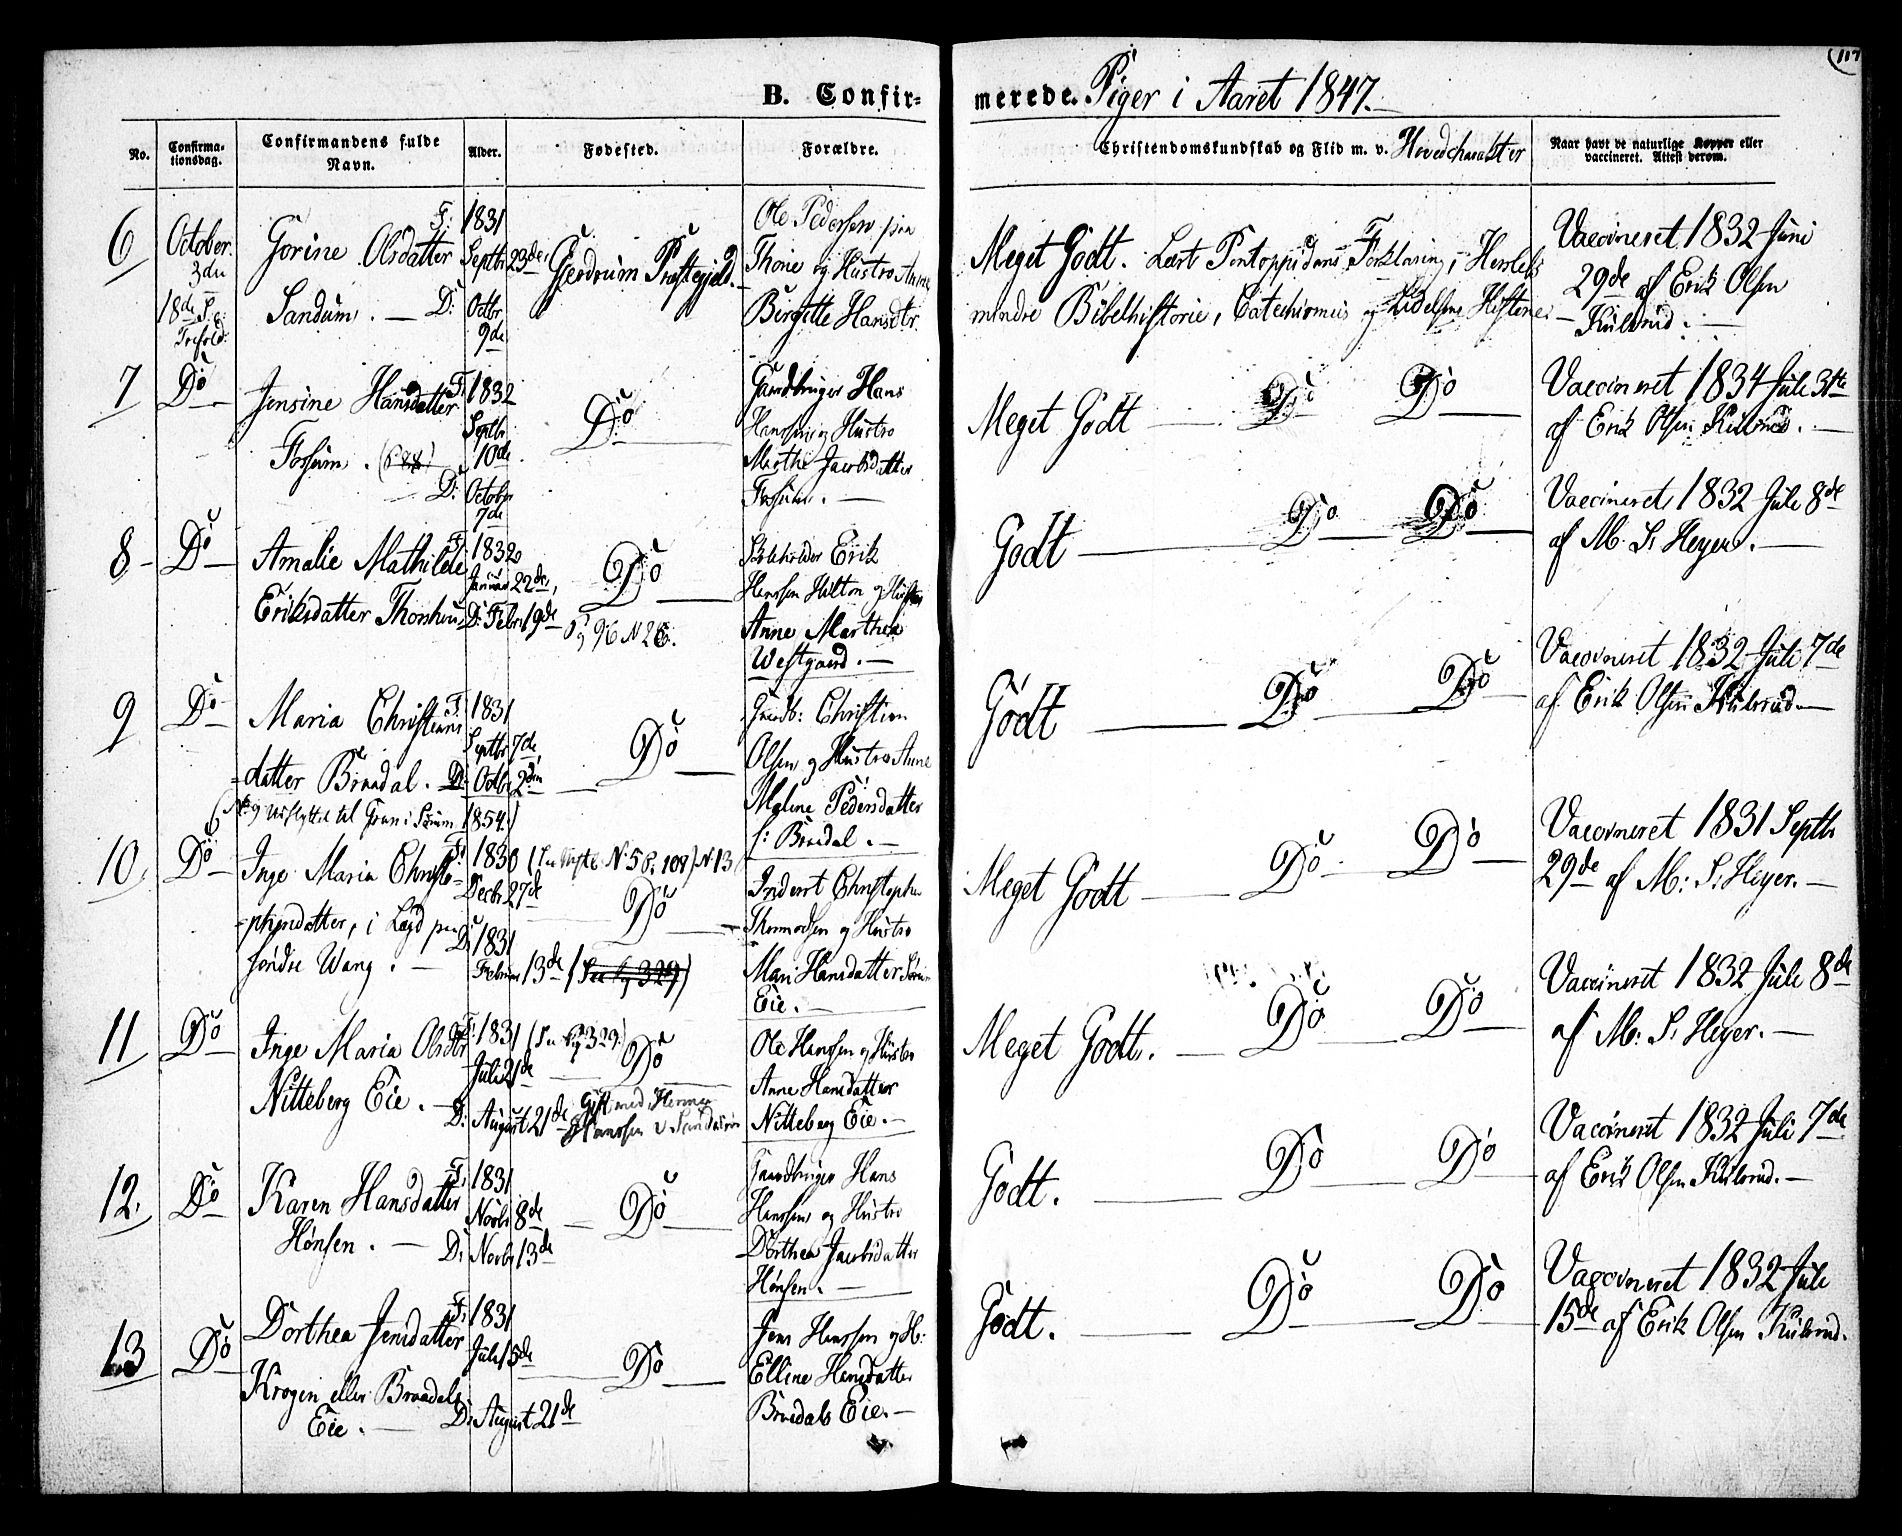 107
B. Confir=
merede. Piger i Aaret 1847.
No.
Confirma-
tionsdag.
Confirmandens fulde
Navn.
Alder.
Fødested.
Forældre.
Christendomskundskab og Flid m. v. Hovedcharakter
Naar havt de naturlige Kopper eller
vaccineret. Attest derom.
6
October
3die
18de S. e.
Trefold:
Gorine Olsdatter
Sandum. —
F: 1831
Septbr 23de
D: Octbr
9de
Gjerdrum Præstegjeld.
Ole Pedersen
og Hustro Anne
Birgitte Hansdtr
Meget Godt. Læst Pontoppidans Forklaring, Herslebs
mindre Bibelhistorie, Catechismus og Lidelsens Historie.
Vaccineret 1832 Juni
29de af Erik Olsen
Kulsrud. —
7
Do
Jensine Hansdatter
Fossum.
F: 1832
Septbr
10de
D: October
7de
Do
Gaardbruger Hans
Hanssen og Hustro
Marthe Jacobsdatter
Fossum. —
Meget Godt — Do Do —
Vaccineret 1834 Juli 3die
af Erik Olsen Kulsrud. —
8
Do
Amalie Mathilde
Eriksdatter
F: 1832
Januar 22de,
D: Febr 19de
Do
Pg 96 N 26.
Skoleholder Erik
Hanssen Hilton og Hustro
Anne Marthea
Westgaard. —
Godt — Do — Do —
Vaccineret 1832 Juli 8de
af M. S. Heyer. —
9
Do
Maria Christians
=datter Braadal. —
(No 9 udflyttet til i 1854.)
F: 1831
Septbr 7de
D: Octbr 2den
Do
Gaardb: Christian
Olsen og Hustro Anne
Malene Pedersdatter
f: Braadal. —
Godt — Do — Do —
Vaccineret 1832 Juli 7de
af Erik Olsen Kulsrud. —
10
Do
Inge Maria Christo=
=phersdatter, i Lægd paa
søndre Wang. —
F: 1830
Decbr 27de
D: 1831
Februar 13de
Do
Inderst Christopher
Thormodsen og Hustro
Mari Hansdatter
Eie. —
Meget Godt — Do — Do —
Vaccineret 1831 Septbr
29de af M: S: Heyer. —
11
Do
Inge Maria Olsdtr
Nitteberg Eie. —
F: 1831
Juli 21de
D: August 21de
Do
Gift med Herman
Hanssen
Ole Hanssen og Hustro
Anne Hansdatter
Nitteberg Eie. —
Meget Godt. — Do — Do —
Vaccineret 1832 Juli 8de
af M: S. Heyer. —
12.
Do
Karen Hansdatter
Hønsen. —
F: 1831
Novbr 8de
D: Novbr 13de
Do
Gaardbruger Hans
Hanssen og Hustro
Dorthea Jacobsdatter
Hønsen. —
Godt. — Do — Do —
Vaccineret 1832 Juli 7de
af Erik Olsen Kulsrud. —
13
Do
Dorthea Jensdatter
Krogen eller Braadals
Eie. —
F: 1831
Juli 15de
D: August 21de
Do
Jens Hanssen og H:
Elline Hansdatter
Braadals Eie. —
Godt. — Do — Do —
Vaccineret 1832 Juli
15de af Erik Olsen Kulsrud.